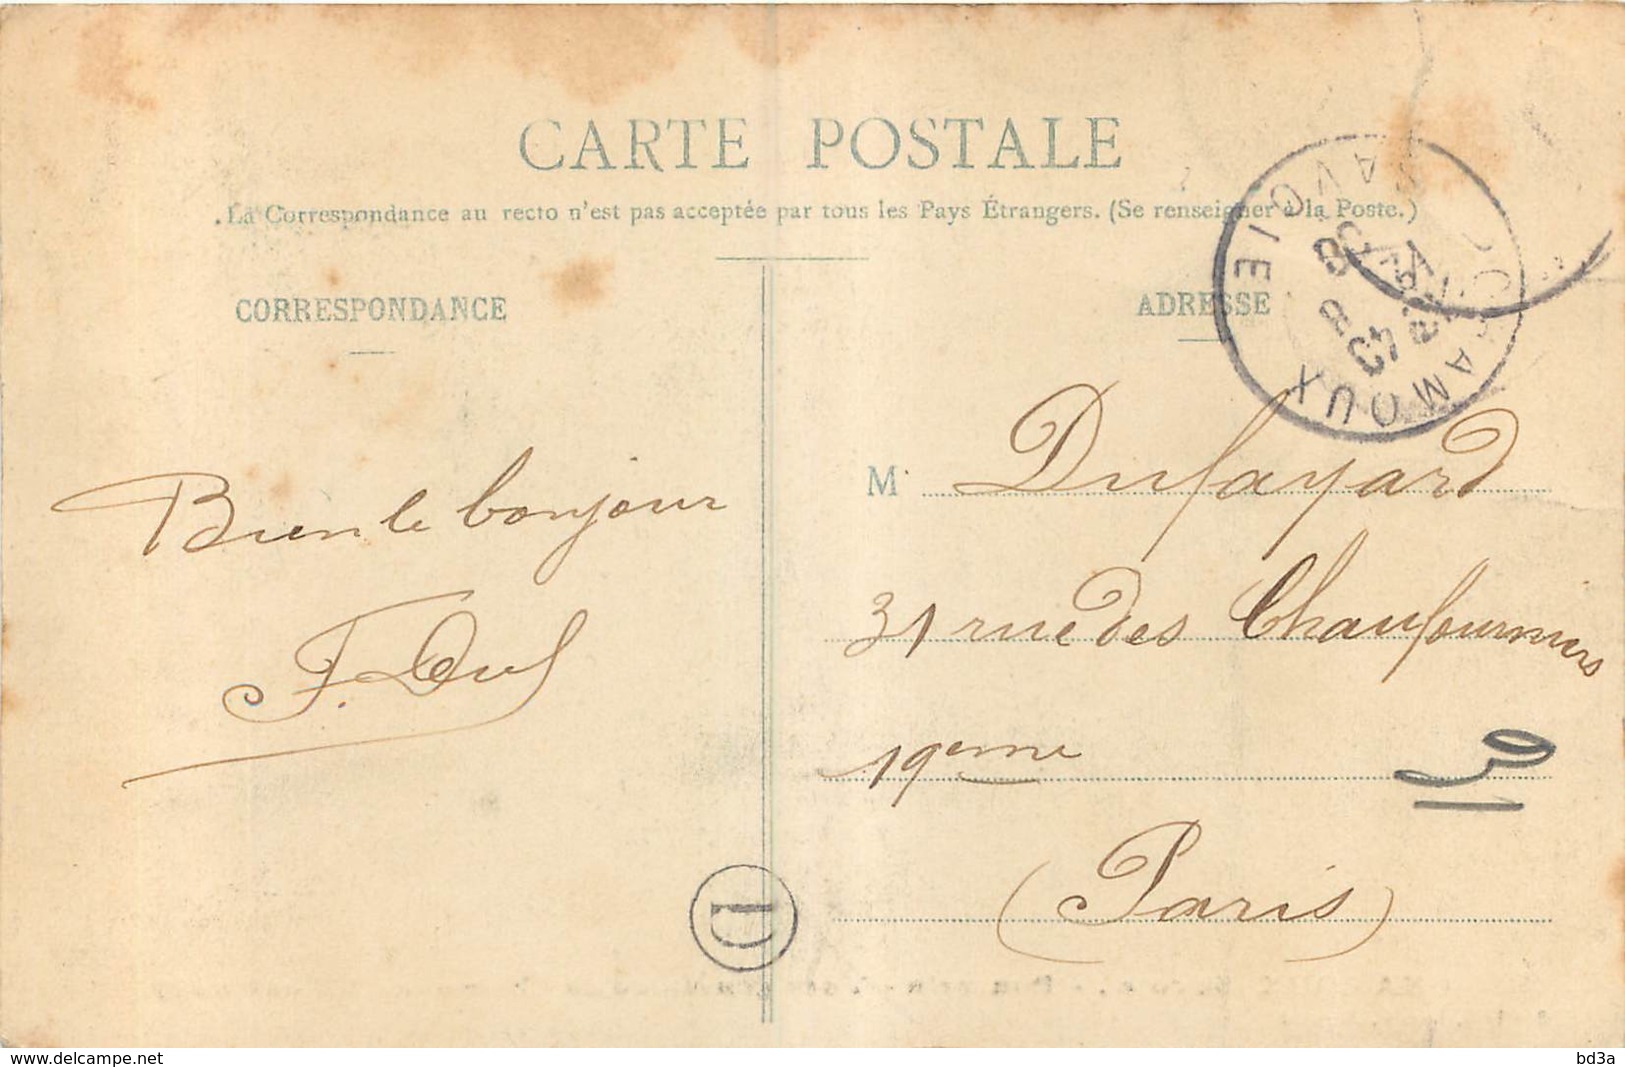 CARTE POSTALE
La Correspondance au recto n'est pas acceptée par tous les Pays Étrangers. (Se renseigner à la Poste.)
CORRESPONDANCE
ADRESSE
SAVOIE
AMOUX
Bien le bonjour
F. Duf
M Dufayard
31 rue des Chaufourniers
19eme
(Paris)
D
www.delcampe.net
bd3a